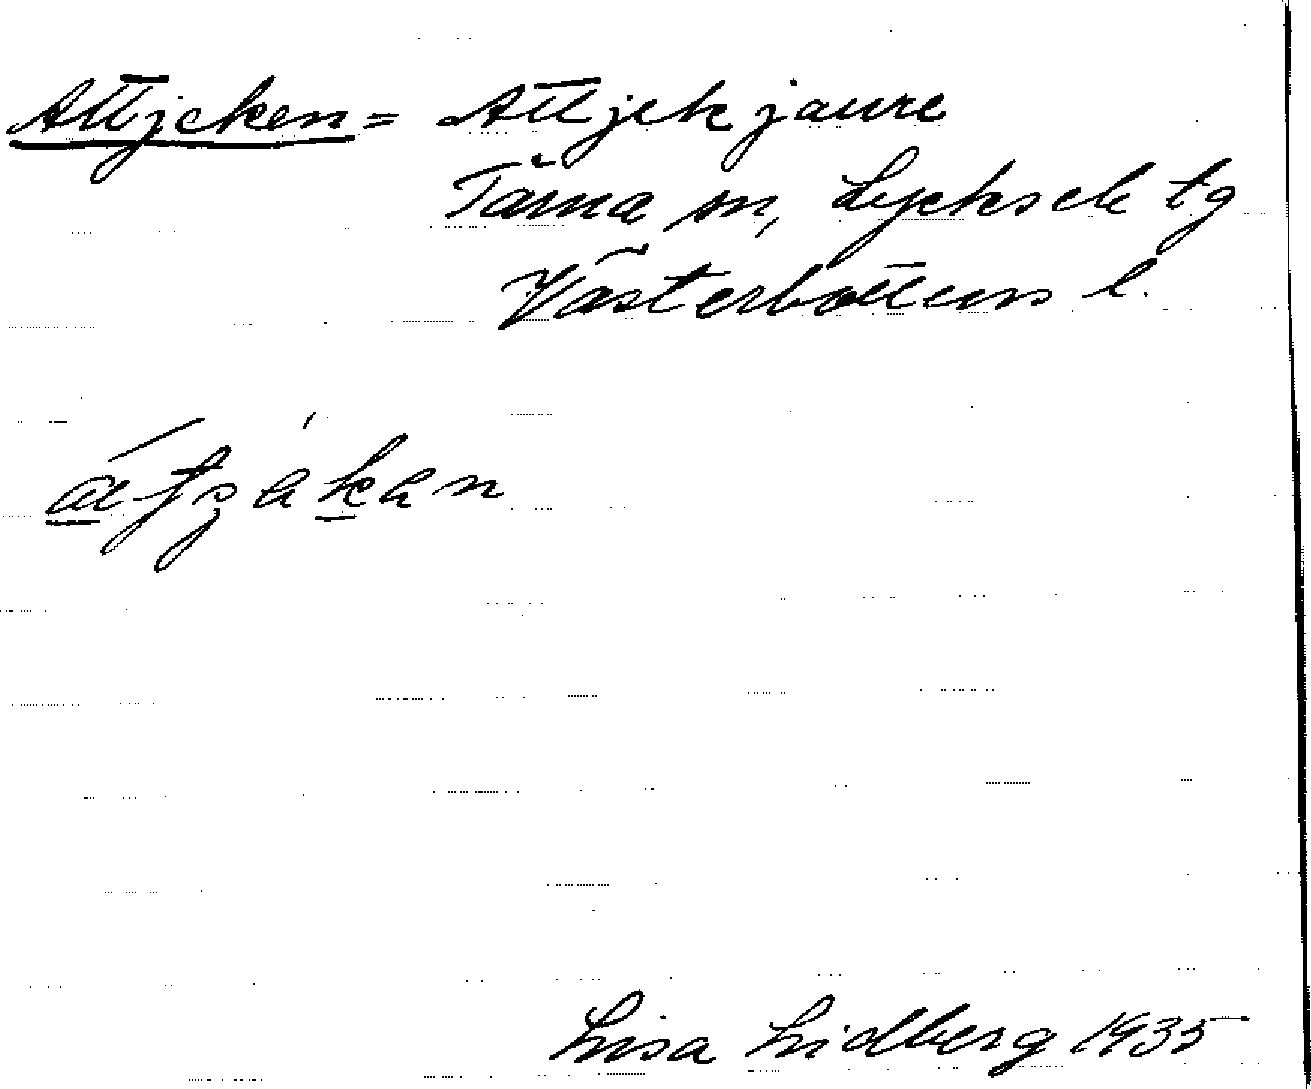 Attjeken = Attjekjaure
Tärna sn, Lycksele tg
Västerbottens l.
Lisa Lidberg 1935